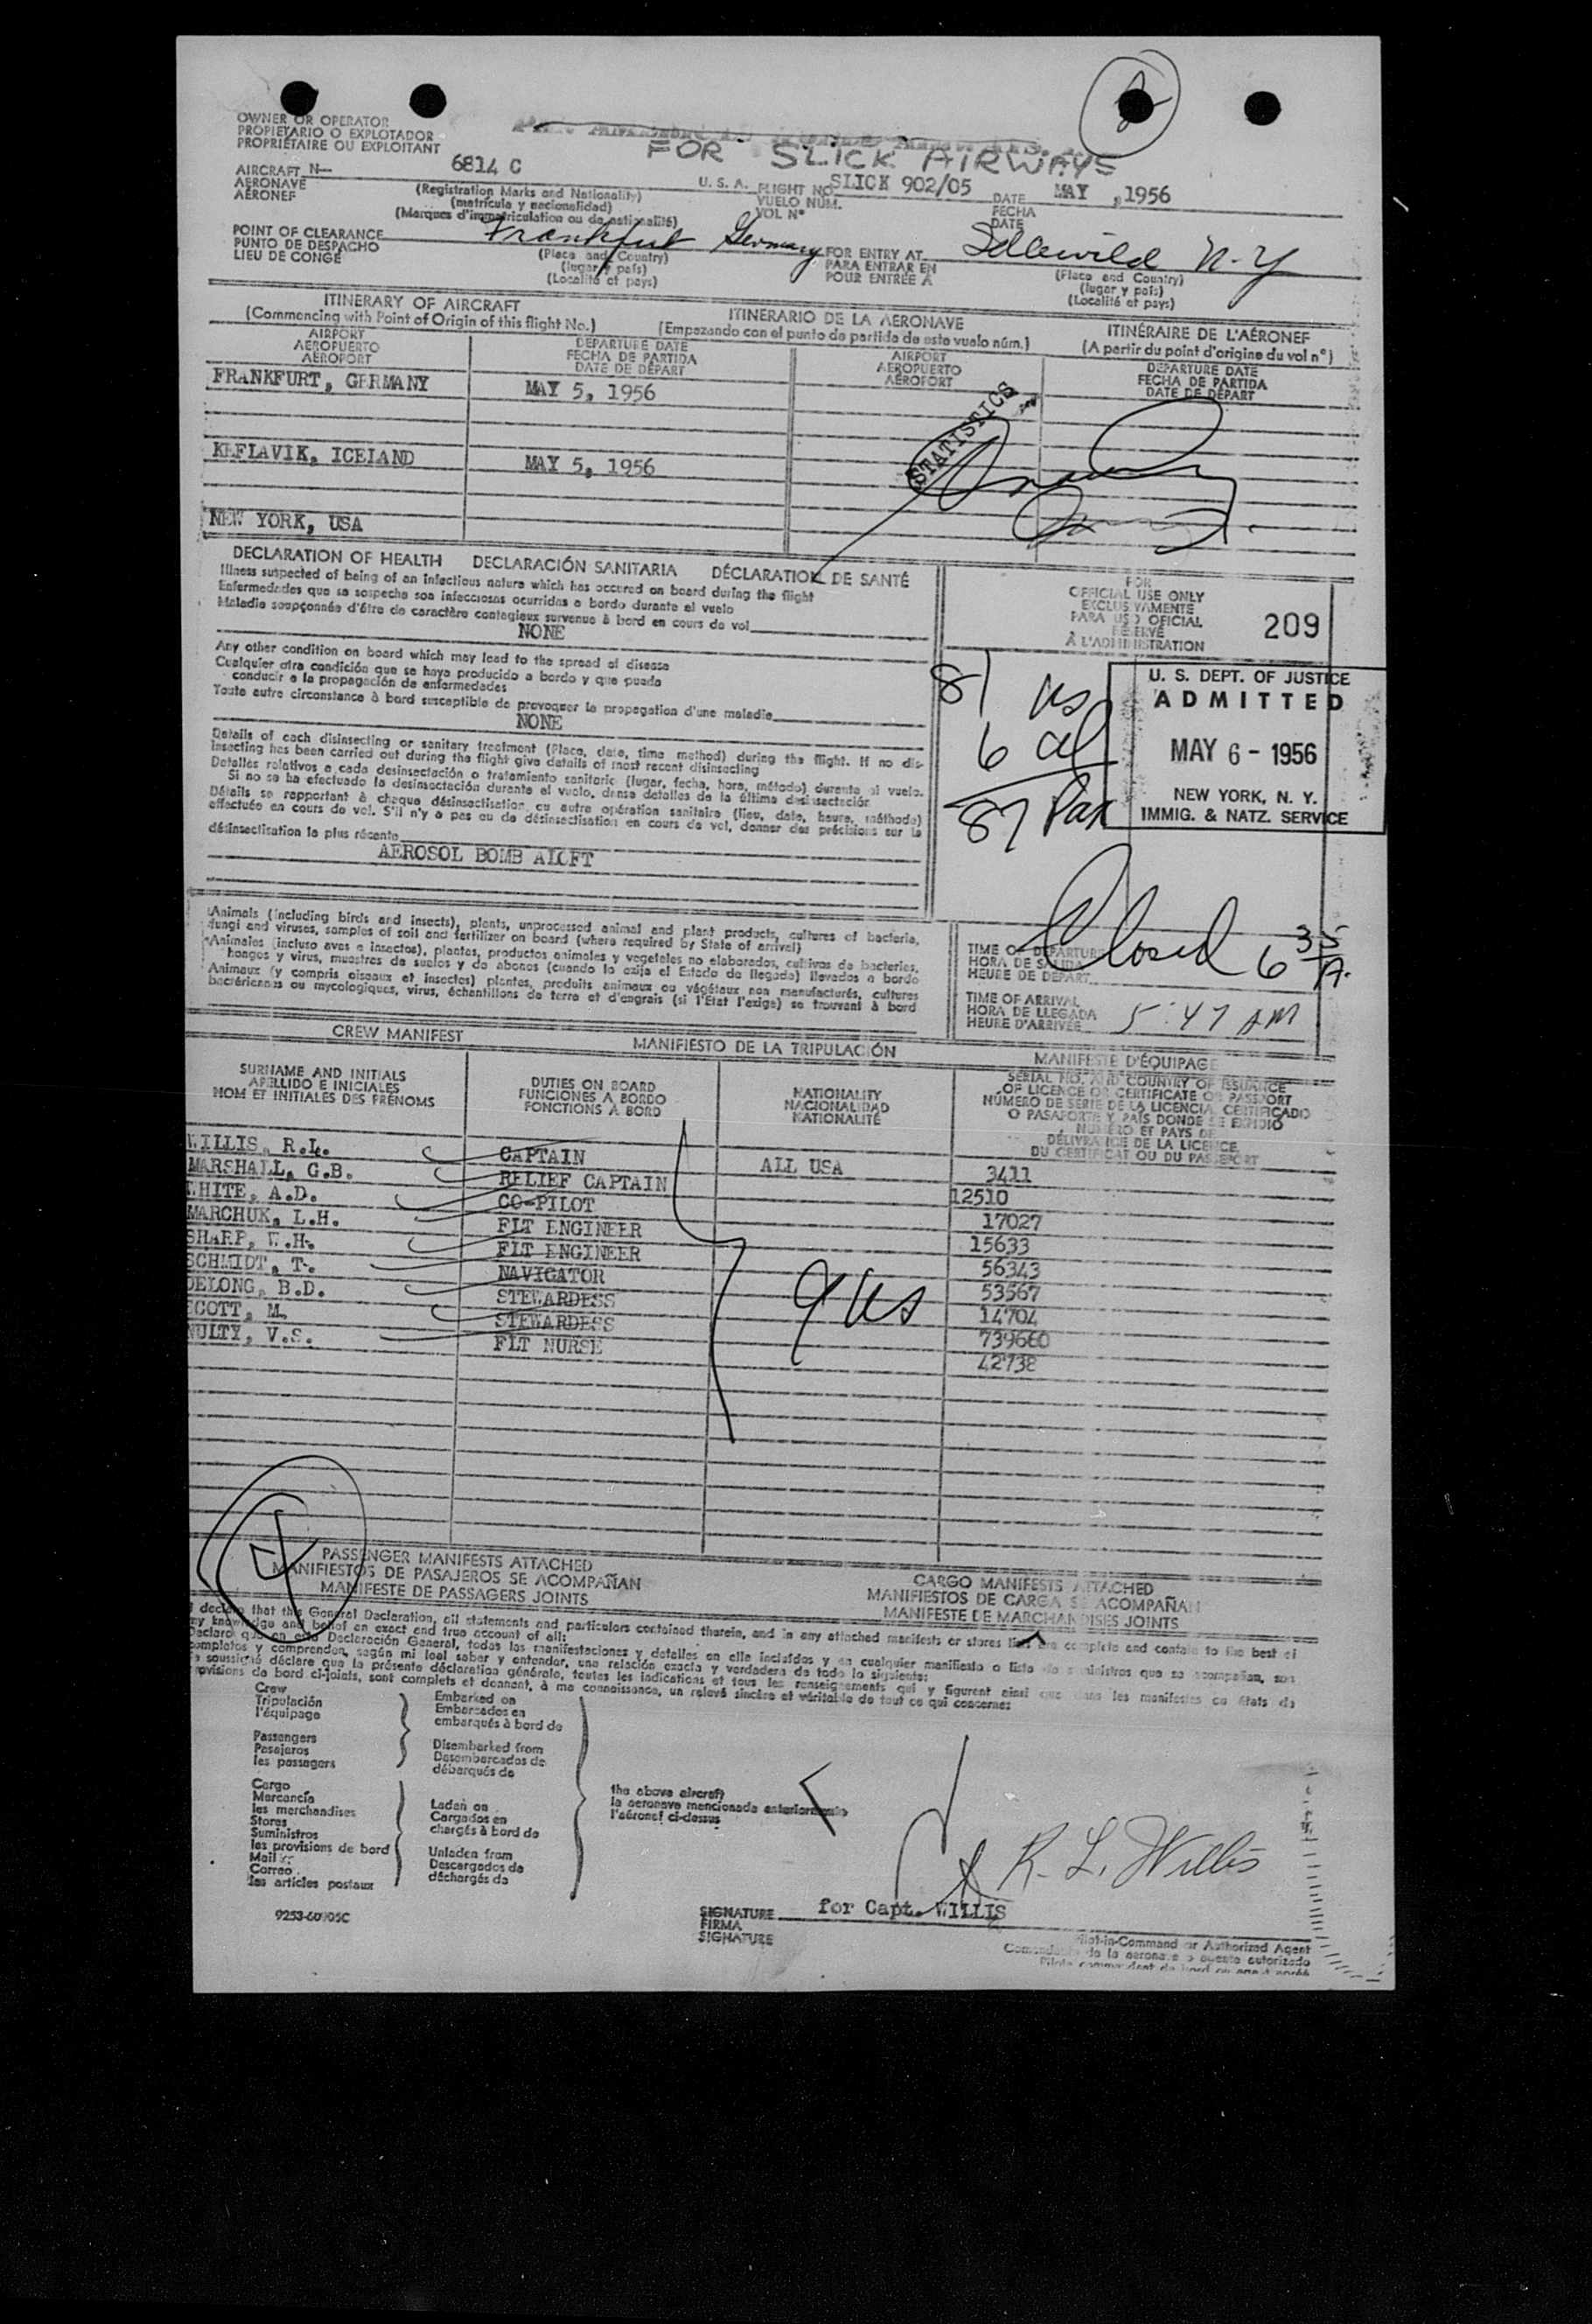 OWNER OR OPERATOR
PROPIETARIO O EXPLOTADOR
PROPRIÉTAIRE OU EXPLOITANT
FOR SLICK AIRWAYS
AIRCRAFT N— 6814 C U. S. A. FLIGHT NO. SLICK 902/05 DATE MAY , 1956
AERONAVE (Registration Marks and Nationality) VUELO NÚM. FECHA
AÉRONEF (matrícula y nacionalidad) VOL N° DATE
(Marques d'immatriculation ou de nationalité)
POINT OF CLEARANCE Frankfurt Germany FOR ENTRY AT Idlewild N.Y
PUNTO DE DESPACHO (Place and Country) PARA ENTRAR EN (Place and Country)
LIEU DE CONGÉ (lugar y país) POUR ENTRÉE À (lugar y país)
(Localité et pays) (Localité et pays)
ITINERARY OF AIRCRAFT ITINERARIO DE LA AERONAVE ITINÉRAIRE DE L'AÉRONEF
(Commencing with Point of Origin of this flight No.) (Empezando con el punto de partida de este vuelo núm.) (A partir du point d'origine du vol n°)
AIRPORT DEPARTURE DATE AIRPORT DEPARTURE DATE
AEROPUERTO FECHA DE PARTIDA AEROPUERTO FECHA DE PARTIDA
AÉROPORT DATE DE DÉPART AÉROPORT DATE DE DÉPART
FRANKFURT, GERMANY MAY 5, 1956
STATISTICS
KEFLAVIK, ICELAND MAY 5, 1956
NEW YORK, USA
DECLARATION OF HEALTH DECLARACIÓN SANITARIA DÉCLARATION DE SANTÉ
Illness suspected of being of an infectious nature which has occured on board during the flight
Enfermedades que se sospeche son infecciosas ocurridas a bordo durante el vuelo
Maladie soupçonnée d'être de caractère contagieux survenue à bord en cours de vol
NONE
Any other condition on board which may lead to the spread of disease
Cualquier otra condición que se haya producido a bordo y que pueda
conducir a la propagación de enfermedades
Toute autre circonstance à bord susceptible de provoquer la propagation d'une maladie
NONE
Details of each disinsecting or sanitary treatment (Place, date, time method) during the flight. If no dis-
insecting has been carried out during the flight give details of most recent disinsecting
Detalles relativos a cada desinsectación o tratamiento sanitario (lugar, fecha, hora, método) durante el vuelo.
Si no se ha efectuado la desinsectación durante el vuelo, dense detalles de la última desinsectación
Détails se rapportant à chaque désinsectisation ou autre opération sanitaire (lieu, date, heure, méthode)
effectuée en cours de vol. S'il n'y a pas eu de désinsectisation en cours de vol, donner des précisions sur la
désinsectisation la plus récente
AEROSOL BOMB ALOFT
FOR
OFFICIAL USE ONLY
EXCLUSIVAMENTE
PARA USO OFICIAL
RÉSERVÉ
À L'ADMINISTRATION
209
81 us
6 al
87 Pax
U. S. DEPT. OF JUSTICE
ADMITTED
MAY 6 - 1956
NEW YORK, N. Y.
IMMIG. & NATZ. SERVICE
Animals (including birds and insects), plants, unprocessed animal and plant products, cultures of bacteria,
fungi and viruses, samples of soil and fertilizer on board (where required by State of arrival)
Animales (incluso aves e insectos), plantas, productos animales y vegetales no elaborados, cultivos de bacterias,
hongos y virus, muestras de suelos y de abonos (cuando lo exija el Estado de llegada) llevados a bordo
Animaux (y compris oiseaux et insectes) plantes, produits animaux ou végétaux non manufacturés, cultures
bactériennes ou mycologiques, virus, échantillons de terre et d'engrais (si l'État l'exige) se trouvant à bord
TIME OF DEPARTURE
HORA DE SALIDA
HEURE DE DÉPART
Closed 6 35 A.
TIME OF ARRIVAL
HORA DE LLEGADA
HEURE D'ARRIVÉE 5:47 AM
CREW MANIFEST MANIFIESTO DE LA TRIPULACIÓN MANIFESTE D'ÉQUIPAGE
SURNAME AND INITIALS
APELLIDO E INICIALES
NOM ET INITIALES DES PRÉNOMS
DUTIES ON BOARD
FUNCIONES A BORDO
FONCTIONS À BORD
NATIONALITY
NACIONALIDAD
NATIONALITÉ
SERIAL NO. AND COUNTRY OF ISSUANCE
OF LICENCE OR CERTIFICATE OR PASSPORT
NÚMERO DE SERIE DE LA LICENCIA, CERTIFICADO
O PASAPORTE Y PAÍS DONDE SE EXPIDIÓ
NUMÉRO ET PAYS DE
DÉLIVRANCE DE LA LICENCE,
DU CERTIFICAT OU DU PASSEPORT
WILLIS, R.L. CAPTAIN ALL USA 3411
MARSHALL, G.B. RELIEF CAPTAIN 12510
WHITE, A.D. CO-PILOT 17027
MARCHUK, L.H. FLT ENGINEER 15633
SHARP, W.H. FLT ENGINEER 56343
SCHMIDT, T. NAVIGATOR 53567
DELONG, B.D. STEWARDESS 14704
SCOTT, M. STEWARDESS 739660
NULTY, V.S. FLT NURSE 42738
9 US
PASSENGER MANIFESTS ATTACHED CARGO MANIFESTS ATTACHED
MANIFIESTOS DE PASAJEROS SE ACOMPAÑAN MANIFIESTOS DE CARGA SE ACOMPAÑAN
MANIFESTE DE PASSAGERS JOINTS MANIFESTE DE MARCHANDISES JOINTS
I declare that this General Declaration, all statements and particulars contained therein, and in any attached manifests or stores lists are complete and contain to the best of
my knowledge and belief an exact and true account of all:
Declaro que en esta Declaración General, todas las manifestaciones y detalles en ella incluídos y en cualquier manifiesto o lista de suministros que se acompañan, son
completos y comprenden, según mi leal saber y entender, una relación exacta y verdadera de todo lo siguiente:
Je soussigné déclare que la présente déclaration générale, toutes les indications et tous les renseignements qui y figurent ainsi que dans les manifestes ou états de
provisions de bord ci-joints, sont complets et donnent, à ma connaissance, un relevé sincère et véritable de tout ce qui concerne:
Crew Embarked on
Tripulación Embarcados en
l'équipage embarqués à bord de
Passengers Disembarked from
Pasajeros Desembarcados de
les passagers débarqués de
Cargo
Mercancía
les merchandises
Stores
Suministros
les provisions de bord
Mail
Correo
les articles postaux
Laden on
Cargados en
chargés à bord de
Unladen from
Descargados de
déchargés de
the above aircraft
la aeronave mencionada anteriormente
l'aéronef ci-dessus
R. L. Willis
SIGNATURE for Capt. WILLIS
FIRMA
SIGNATURE
9253-60705C
Pilot-in-Command or Authorized Agent
Comandante de la aeronave o agente autorizado
Pilote commandant de bord ou agent agréé